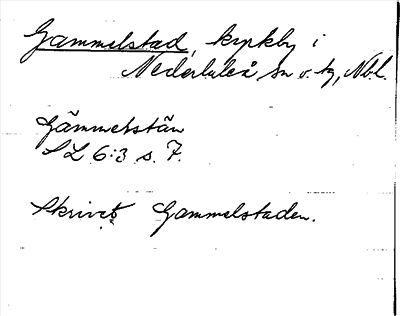 Gammelstad, kyrkby i
Nederluleå sn o. tg, Nbl.
Gämmelstän
SL 6:3 s. 7.
Skrivet Gammelstaden.